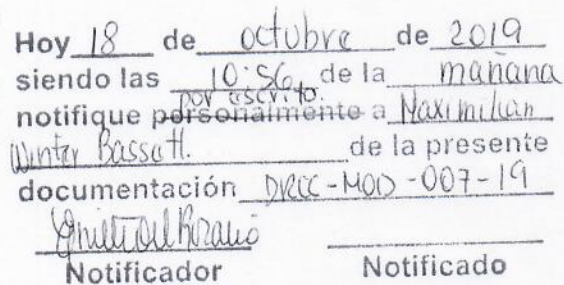 Hoy 18 de octubre de 2019
siendo las 10:56 de la mañana
por escrito.
notifique personalmente a Maximilian
Winter Bassett. de la presente
documentación DRCC-MOD-007-19
Notificador Notificado